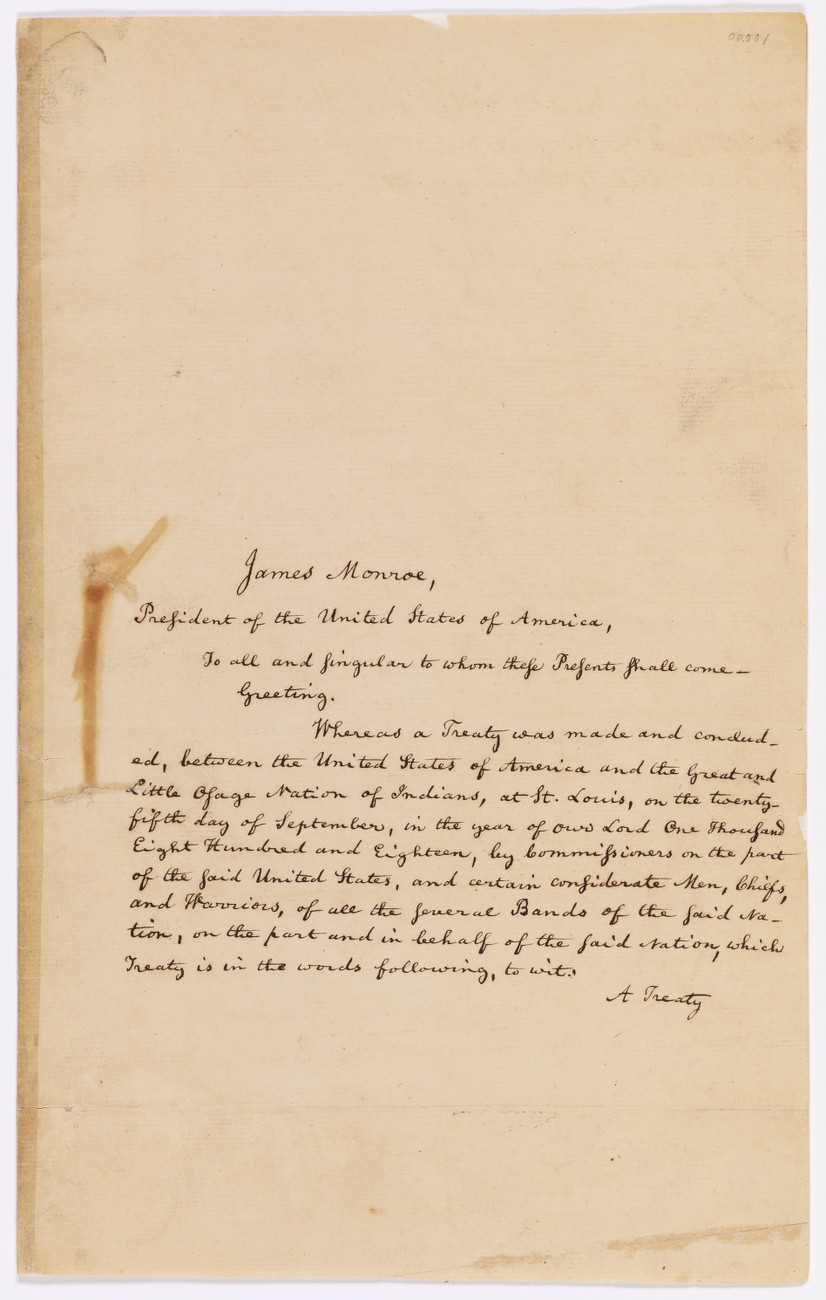 00001
James Monroe,
President of the United States of America,
To all and singular to whom these Presents shall come—
Greeting.
Whereas a Treaty was made and conclud-
ed, between the United States of America and the Great and
Little Osage Nation of Indians, at St. Louis, on the twenty-
fifth day of September, in the year of our Lord One Thousand
Eight Hundred and Eighteen, by Commissioners on the part
of the said United States, and certain considerate Men, Chiefs,
and Warriors, of all the several Bands of the said Na-
tion, on the part and in behalf of the said Nation, which
Treaty is in the words following, to wit:
A Treaty